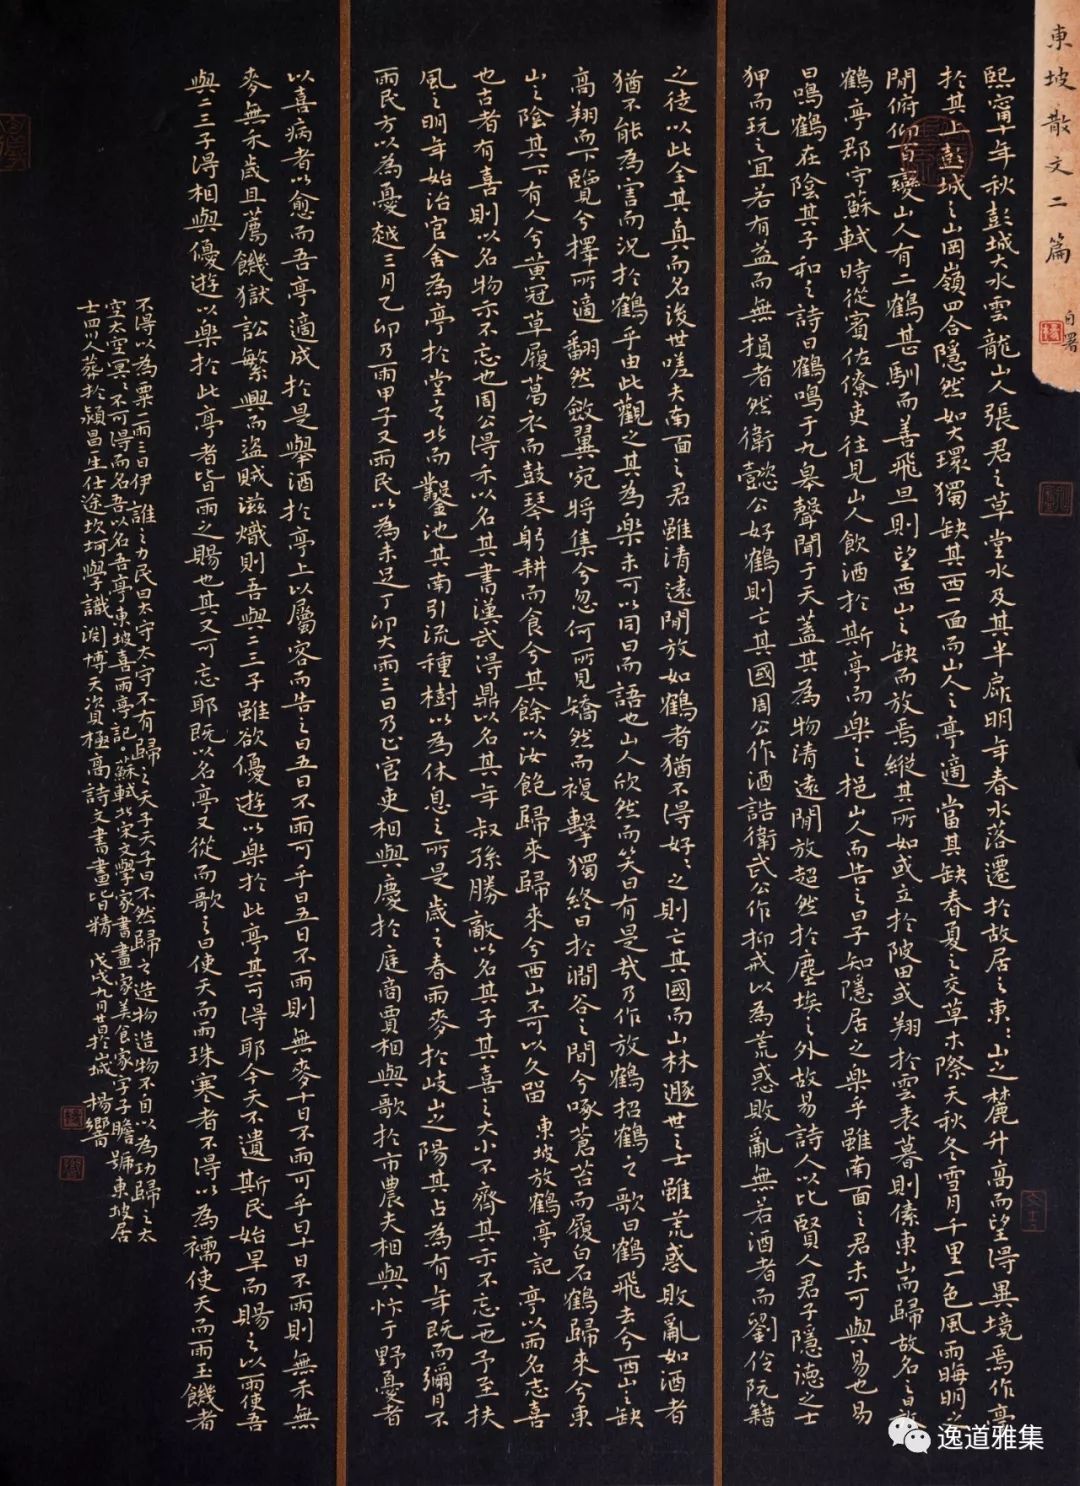 東坡散文二篇
自署
熙甯十年秋彭城大水雲龍山人張君之草堂水及其半扉明年春水落遷於故居之東:山之麓升高而望得異境焉作亭
於其上彭城之山岡嶺四合隱然如大環獨缺其西一面而山人之亭適當其缺春夏之交草木際天秋冬雪月千里一色風雨晦明之
閒俯仰百變山人有二鶴甚馴而善飛旦則望西山之缺而放焉縱其所如或立於陂田或翔於雲表暮則傃東山而歸故名之曰
鶴亭郡守蘇軾時從賓佐僚吏往見山人飲酒於斯亭而樂之挹山人而告之曰子知隱居之樂乎雖南面之君未可與易也易
曰鳴鶴在陰其子和之詩曰鶴鳴于九皋聲聞于天蓋其為物清遠閒放超然於塵埃之外故易詩人以比賢人君子隱德之士
狎而玩之宜若有益而無損者然衛懿公好鶴則亡其國周公作酒誥衛武公作抑戒以為荒惑敗亂無若酒者而劉伶阮籍
之徒以此全其真而名後世嗟夫南面之君雖清遠閒放如鶴者猶不得好:之則亡其國而山林遯世之士雖荒惑敗亂如酒者
猶不能為害而況於鶴乎由此觀之其為樂未可以同日而語也山人欣然而笑曰有是哉乃作放鶴招鶴之歌曰鶴飛去兮西山之缺
高翔而下覽兮擇所適翻然斂翼宛將集兮忽何所見矯然而複擊獨終日於澗谷之間兮啄蒼苔而履白石鶴歸來兮東
山之陰其下有人兮黃冠草履葛衣而鼓琴躬耕而食兮其餘以汝飽歸來歸來兮西山不可以久留 東坡放鶴亭記 亭以雨名志喜
也古者有喜則以名物示不忘也周公得禾以名其書漢武得鼎以名其年叔孫勝敵以名其子其喜之大小不齊其示不忘一也予至扶
風之明年始治官舍為亭於堂之北而鑿池其南引流種樹以為休息之所是歲之春雨麥於岐山之陽其占為有年既而彌月不
雨民方以為憂越三月乙卯乃雨甲子又雨民以為未足丁卯大雨三日乃止官吏相與慶於庭商賈相與歌於市農夫相與忭于野憂者
以喜病者以愈而吾亭適成於是舉酒於亭上以屬客而告之曰五日不雨可乎曰五日不雨則無麥十日不雨可乎曰十日不雨則無禾無
麥無禾歲且薦饑獄訟繁興而盜賊滋熾則吾與二三子雖欲優遊以樂於此亭其可得耶今天不遺斯民始旱而賜之以雨使吾
與二三子得相與優遊以樂於此亭者皆雨之賜也其又可忘耶既以名亭又從而歌之曰使天而雨珠寒者不得以為襦使天而雨玉饑者
不得以為粟一雨三日伊誰之力民曰太守太守不有歸之天子天子曰不然歸之造物造物不自以為功歸之太
空太空冥不可得而名吾以名吾亭東坡喜雨亭記。蘇軾北宋文學家書畫家美食家字子瞻號東坡居
士四川人葬於潁昌一生仕途坎坷學識淵博天資極高詩文書畫皆精 戊戌九月 於 城 楊
逸道雅集